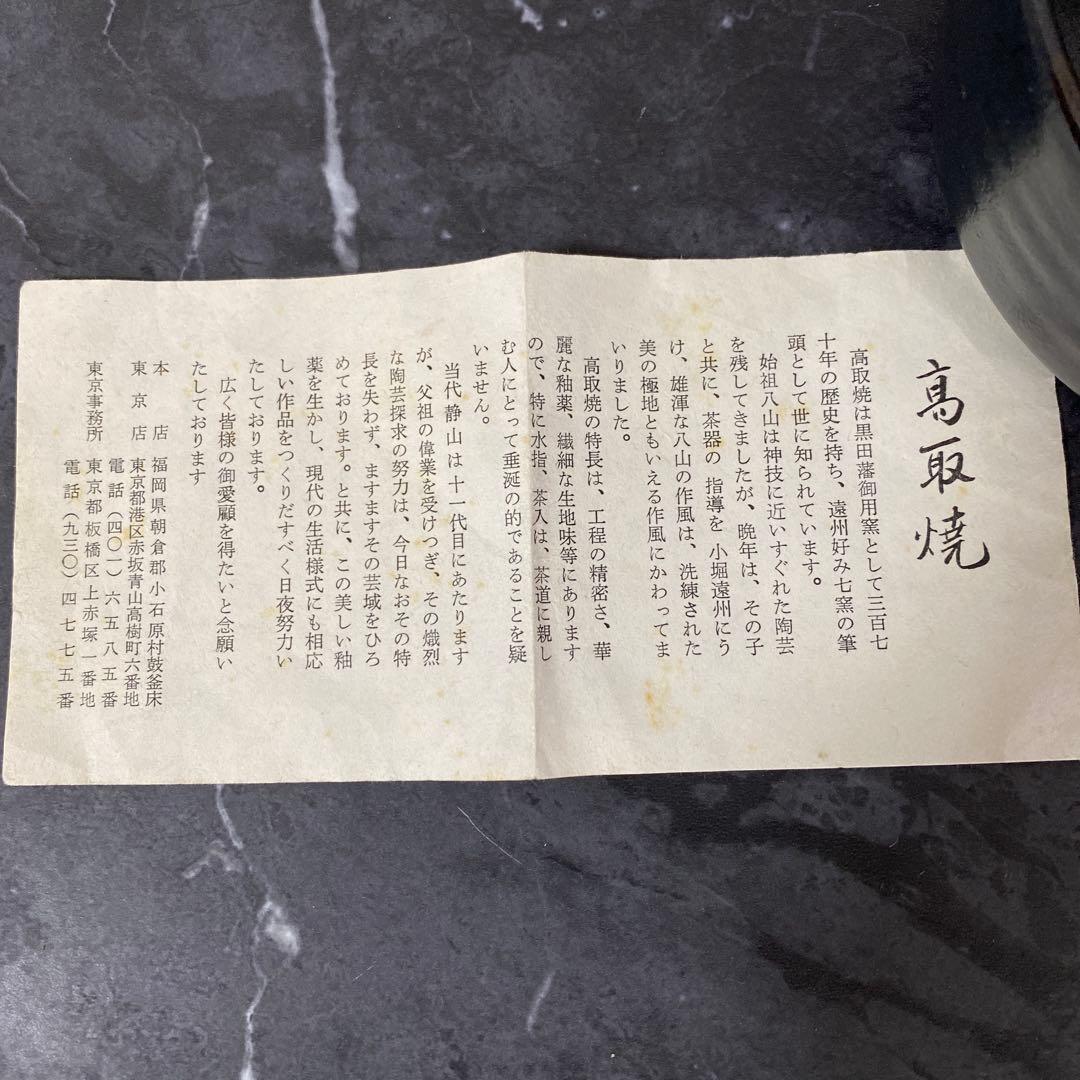 高取焼
高取焼は黒田藩御用窯として三百七
十年の歴史を持ち、遠州好み七窯の筆
頭として世に知られています。
始祖八山は神技に近いすぐれた陶芸
を残してきましたが、晩年は、その子
と共に、茶器の指導を小堀遠州にう
け、雄渾な八山の作風は、洗練された
美の極地ともいえる作風にかわってま
いりました。
高取焼の特長は、工程の精密さ、華
麗な釉薬、繊細な生地味等にあります
ので、特に水指、茶入は、茶道に親し
む人にとって垂涎の的であることを疑
いません。
当代静山は十一代目にあたります
が、父祖の偉業を受けつぎ、その熾烈
な陶芸探求の努力は、今日なおその特
長を失わず、ますますその芸域をひろ
めております。と共に、この美しい釉
薬を生かし、現代の生活様式にも相応
しい作品をつくりだすべく日夜努力い
たしております。
広く皆様の御愛顧を得たいと念願い
たしております
本店 福岡県朝倉郡小石原村鼓釜床
東京店 東京都港区赤坂青山高樹町六番地
電話(四〇一)六五八五番
東京事務所 東京都板橋区上赤塚一番地
電話(九三〇)四七七五番